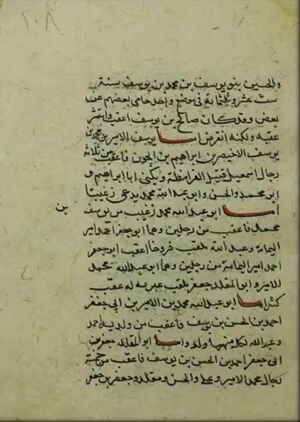 ١٠٨
والحسين بنو يوسف بن محمد بن يوسف سنة
ست عشر وثلثمائة في موضع واحد حامى بعضهم عن
بعض وقد كان صالح بن يوسف اعقب وانتشر
عقبه ولكنه انقرض اما يوسف الامير بن محمد بن
يوسف الاخيضر بن ابراهيم بن الجون فاعقب من ثلاثة
رجال اسمعيل قتيل القرامطة ويكنى ابا ابراهيم و
ابى محمد الحسن وابى عبد الله محمد يدعى زغيبا
اما ابو عبد الله محمد زغيب بن يوسف بن
محمد فاعقب من رجلين وهما ابو جعفر احمد امير
اليمامة وعبد الله يلقب فروخا اعقب ابو جعفر
احمد امير اليمامة من رجلين وهما ابو عبد الله محمد
الامير وابو المقلد جعفر يلقب عبرية له عقب
كثير اما ابو عبد الله محمد بن الامير بن ابى جعفر
احمد بن الحسن بن يوسف فاعقب من ولديه احمد
وعبد الله لكل منهما ولد واما ابو المقلد جعفر بن
ابى جعفر احمد بن الحسن بن يوسف فاعقب من خمسة
رجال محمد الامير وعلى والحسن ومقلد وجعفر بن جعفر